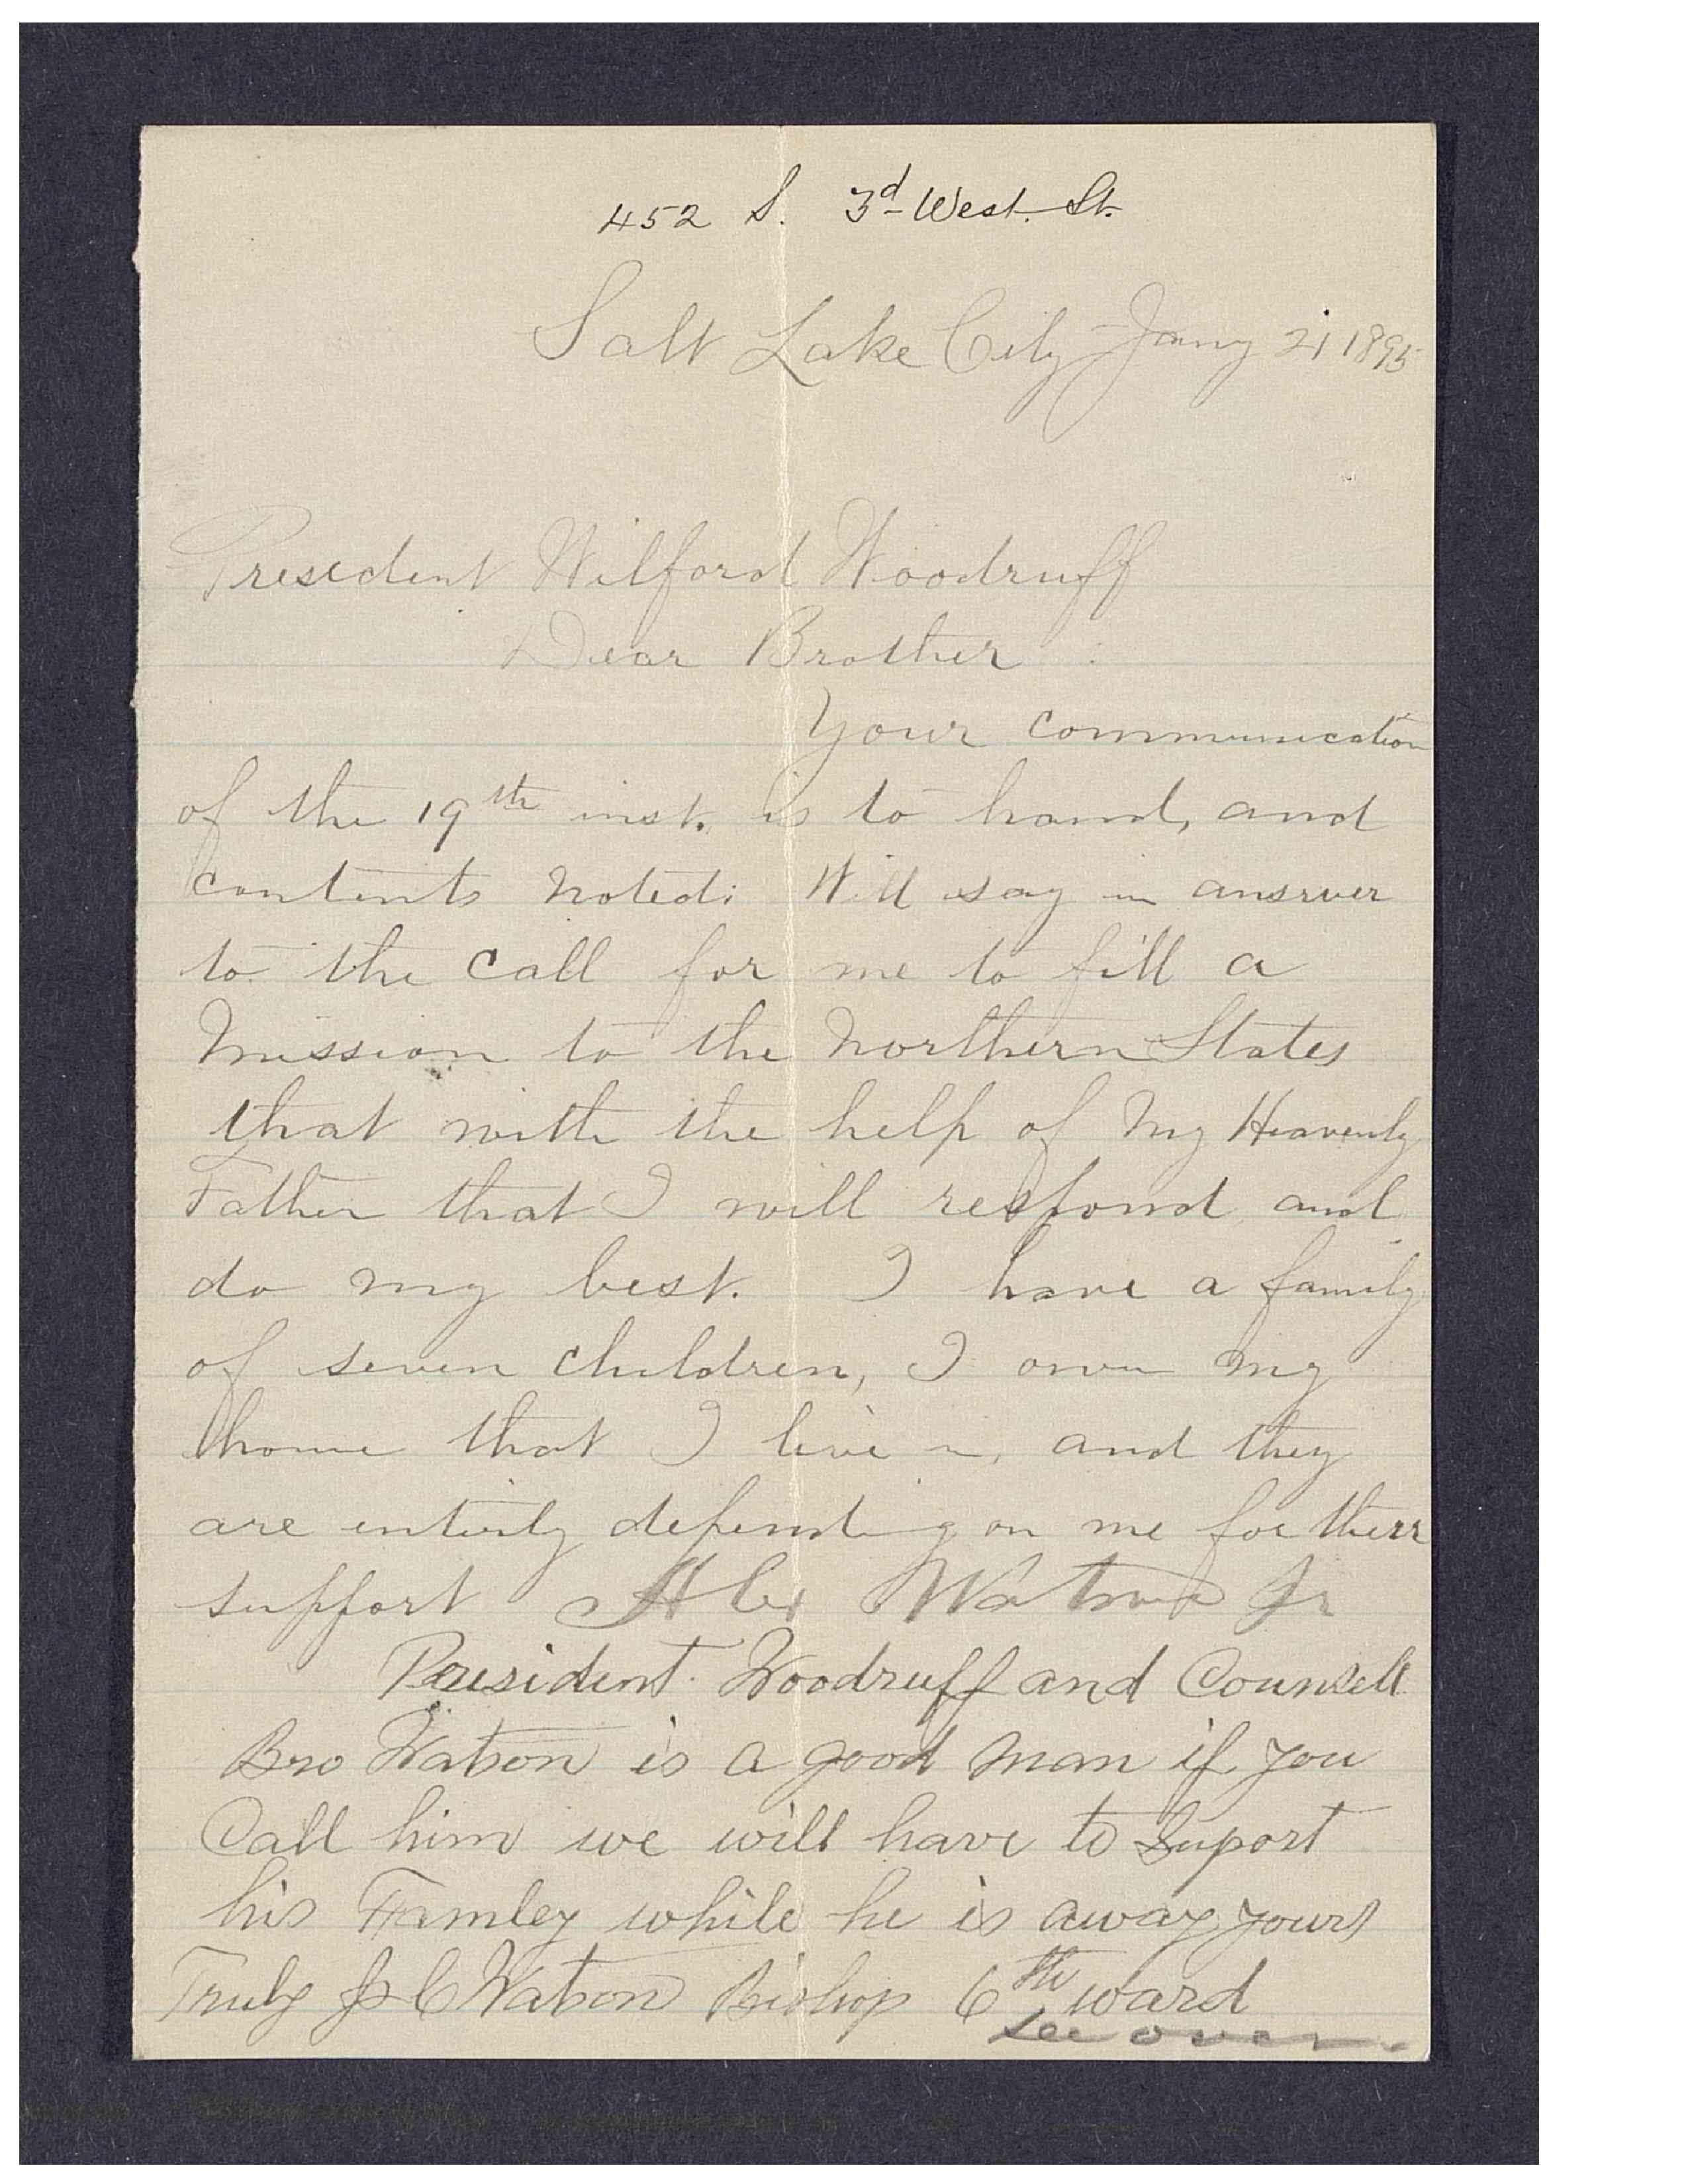 452 S. 3d West. St.
Salt Lake City Jany 21 1895
President Wilford Woodruff
Dear Brother :
Your communication
of the 19th inst. is to hand, and
contents noted; Will say in answer
to the call for me to fill a
Mission to the Northern States
that with the help of My Heavenly
Father that I will respond and
do my best. I have a family
of seven children, I own my
home that I live in, and they
are entirly depending on me for their
support Alex Watson Jr
President Woodruff and Counsell
Bro Watson is a good man if you
Call him we will have to Suport
his Famley while he is away yours
Truly J C Watson Bishop 6th ward
See over.